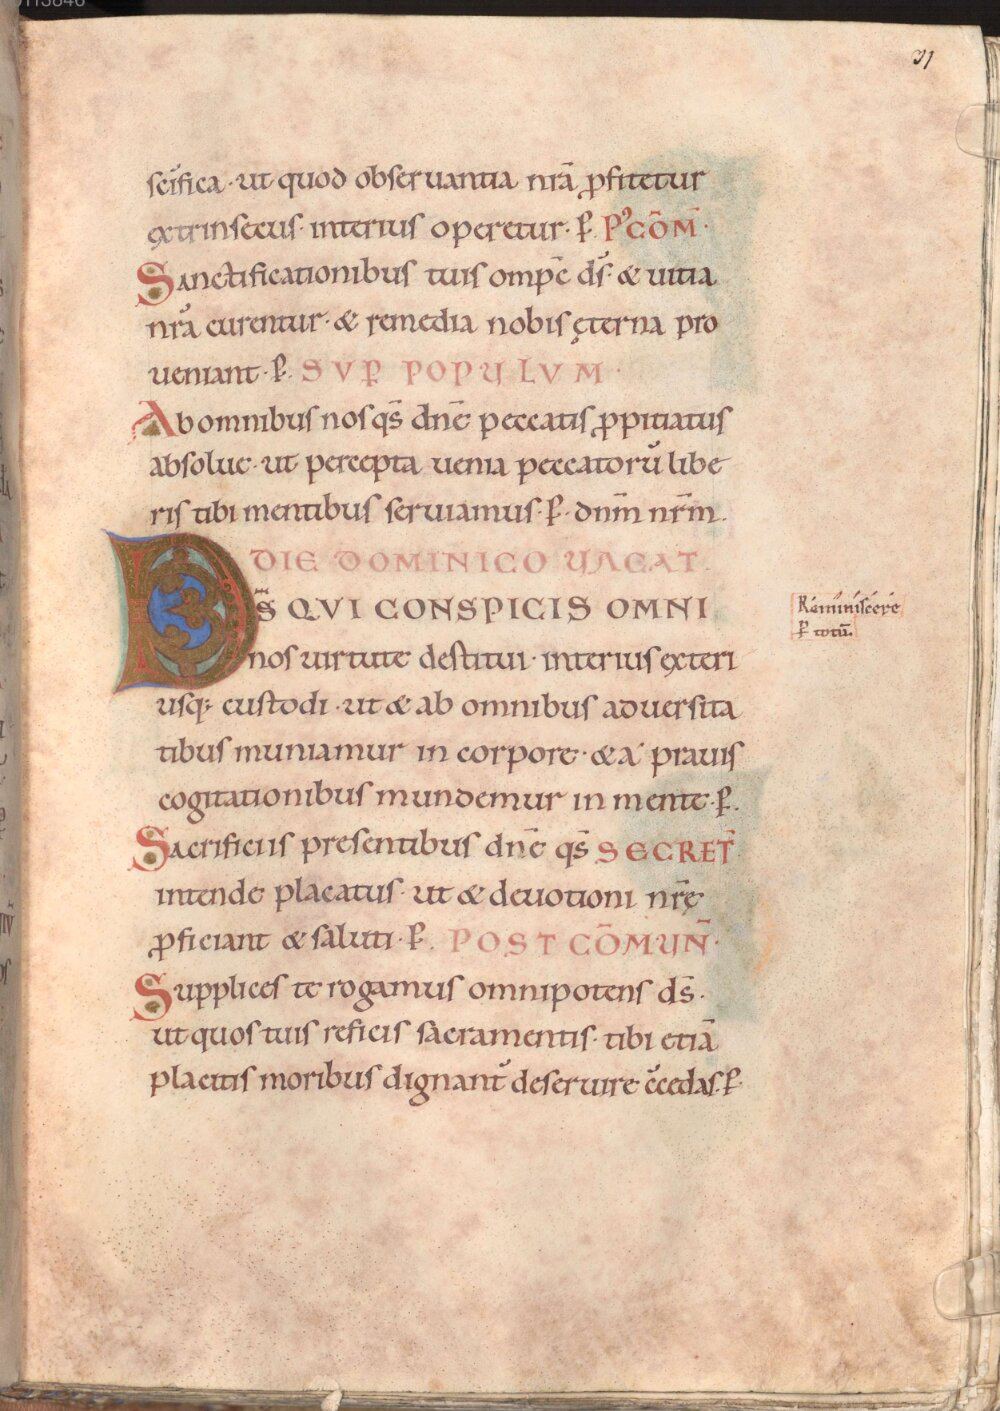 31
sc̄ifica · ut quod obseruantia nr̄a ꝓfitetur
extrinsecus · interius operetur · P̲. P'CŌM̄ ·
Sanctificationibus tuis omp̄c ds̄ · & uitia
nr̄a curentur · & remedia nobis ęterna pro
ueniant · P̲. SVP̲ POPULUM ·
Ab omnibus nos qs̄ dn̄e peccatis ꝓpitiatus
absolue · ut percepta uenia peccatorū libe
ris tibi mentibus seruiamus · P̲ · dnm̄ nr̄m .
DIE DOMINICO UACAT .
DS̄ QVI CONSPICIS OMNI
nos uirtute destitui · interius exteri
usq; custodi · ut & ab omnibus aduersita
tibus muniamur in corpore · & a prauis
cogitationibus mundemur in mente · P̲.
Sacrificiis presentibus dn̄e qs̄ SECRET̄
intende placatus · ut & deuotioni nr̄ę
ꝓficiant & saluti · P̲ . POST CŌMUN̄ ·
Supplices te rogamus omnipotens ds̄ ·
ut quos tuis reficis sacramentis · tibi etiā
placitis moribus dignant̄ deseruire c̄cedas · P̲ ·
Reminiscere
P̲ totū .